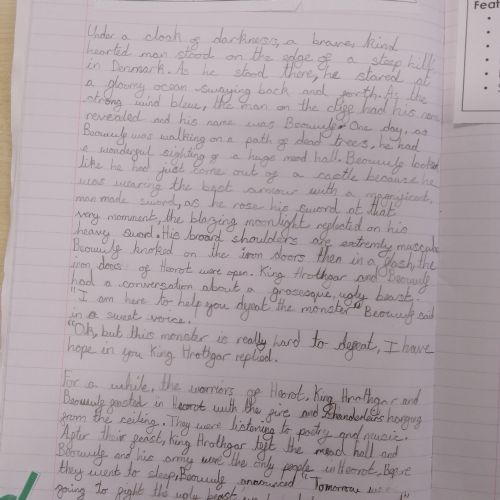 Feat
Under a cloak of darkness, a brave, kind
hearted man stood on the edge of a steep hill
in Denmark. As he stood there, he stared at
a gloomy ocean swaying back and forth. As the
strong wind blew, the man on the cliff had his name
revealed and his name was Beowulf. One day, as
Beowulf was walking on a path of dead trees, he had
a wonderful sighting of a huge mead hall. Beowulf looked
like he had just come out of a castle because he
was wearing the best armour with a magnificent,
man made sword, as he rose his sword at that
very momment, the blazing moonlight reflected on his
heavy sword. His broard shoulders are extremly muscular
Beowulf knoked on the iron doors then in a flash, the
iron doors of Heorot were open. King Hrothgar and Beowulf
had a conversation about a grosesque, ugly beast.
"I am here to help you defeat the monster" Beowulf said
in a sweet vorice.
"Oh, but this monster is really hard to defeat, I have
hope in you King Hrothgar replied.
For a while, the warriors of Heorot, King Hrothgar and
Beowulf feasted in Heorot with the fire and Shanderleirs hanging
from the ceiling. They were listening to poetry and music.
After their feast, King Hrothgar left the mead hall and
Beowulf and his army were the only people in Heorot. Before
they went to sleep, Beowulf announced "Tomorrow we're
going to fight the ugly beast